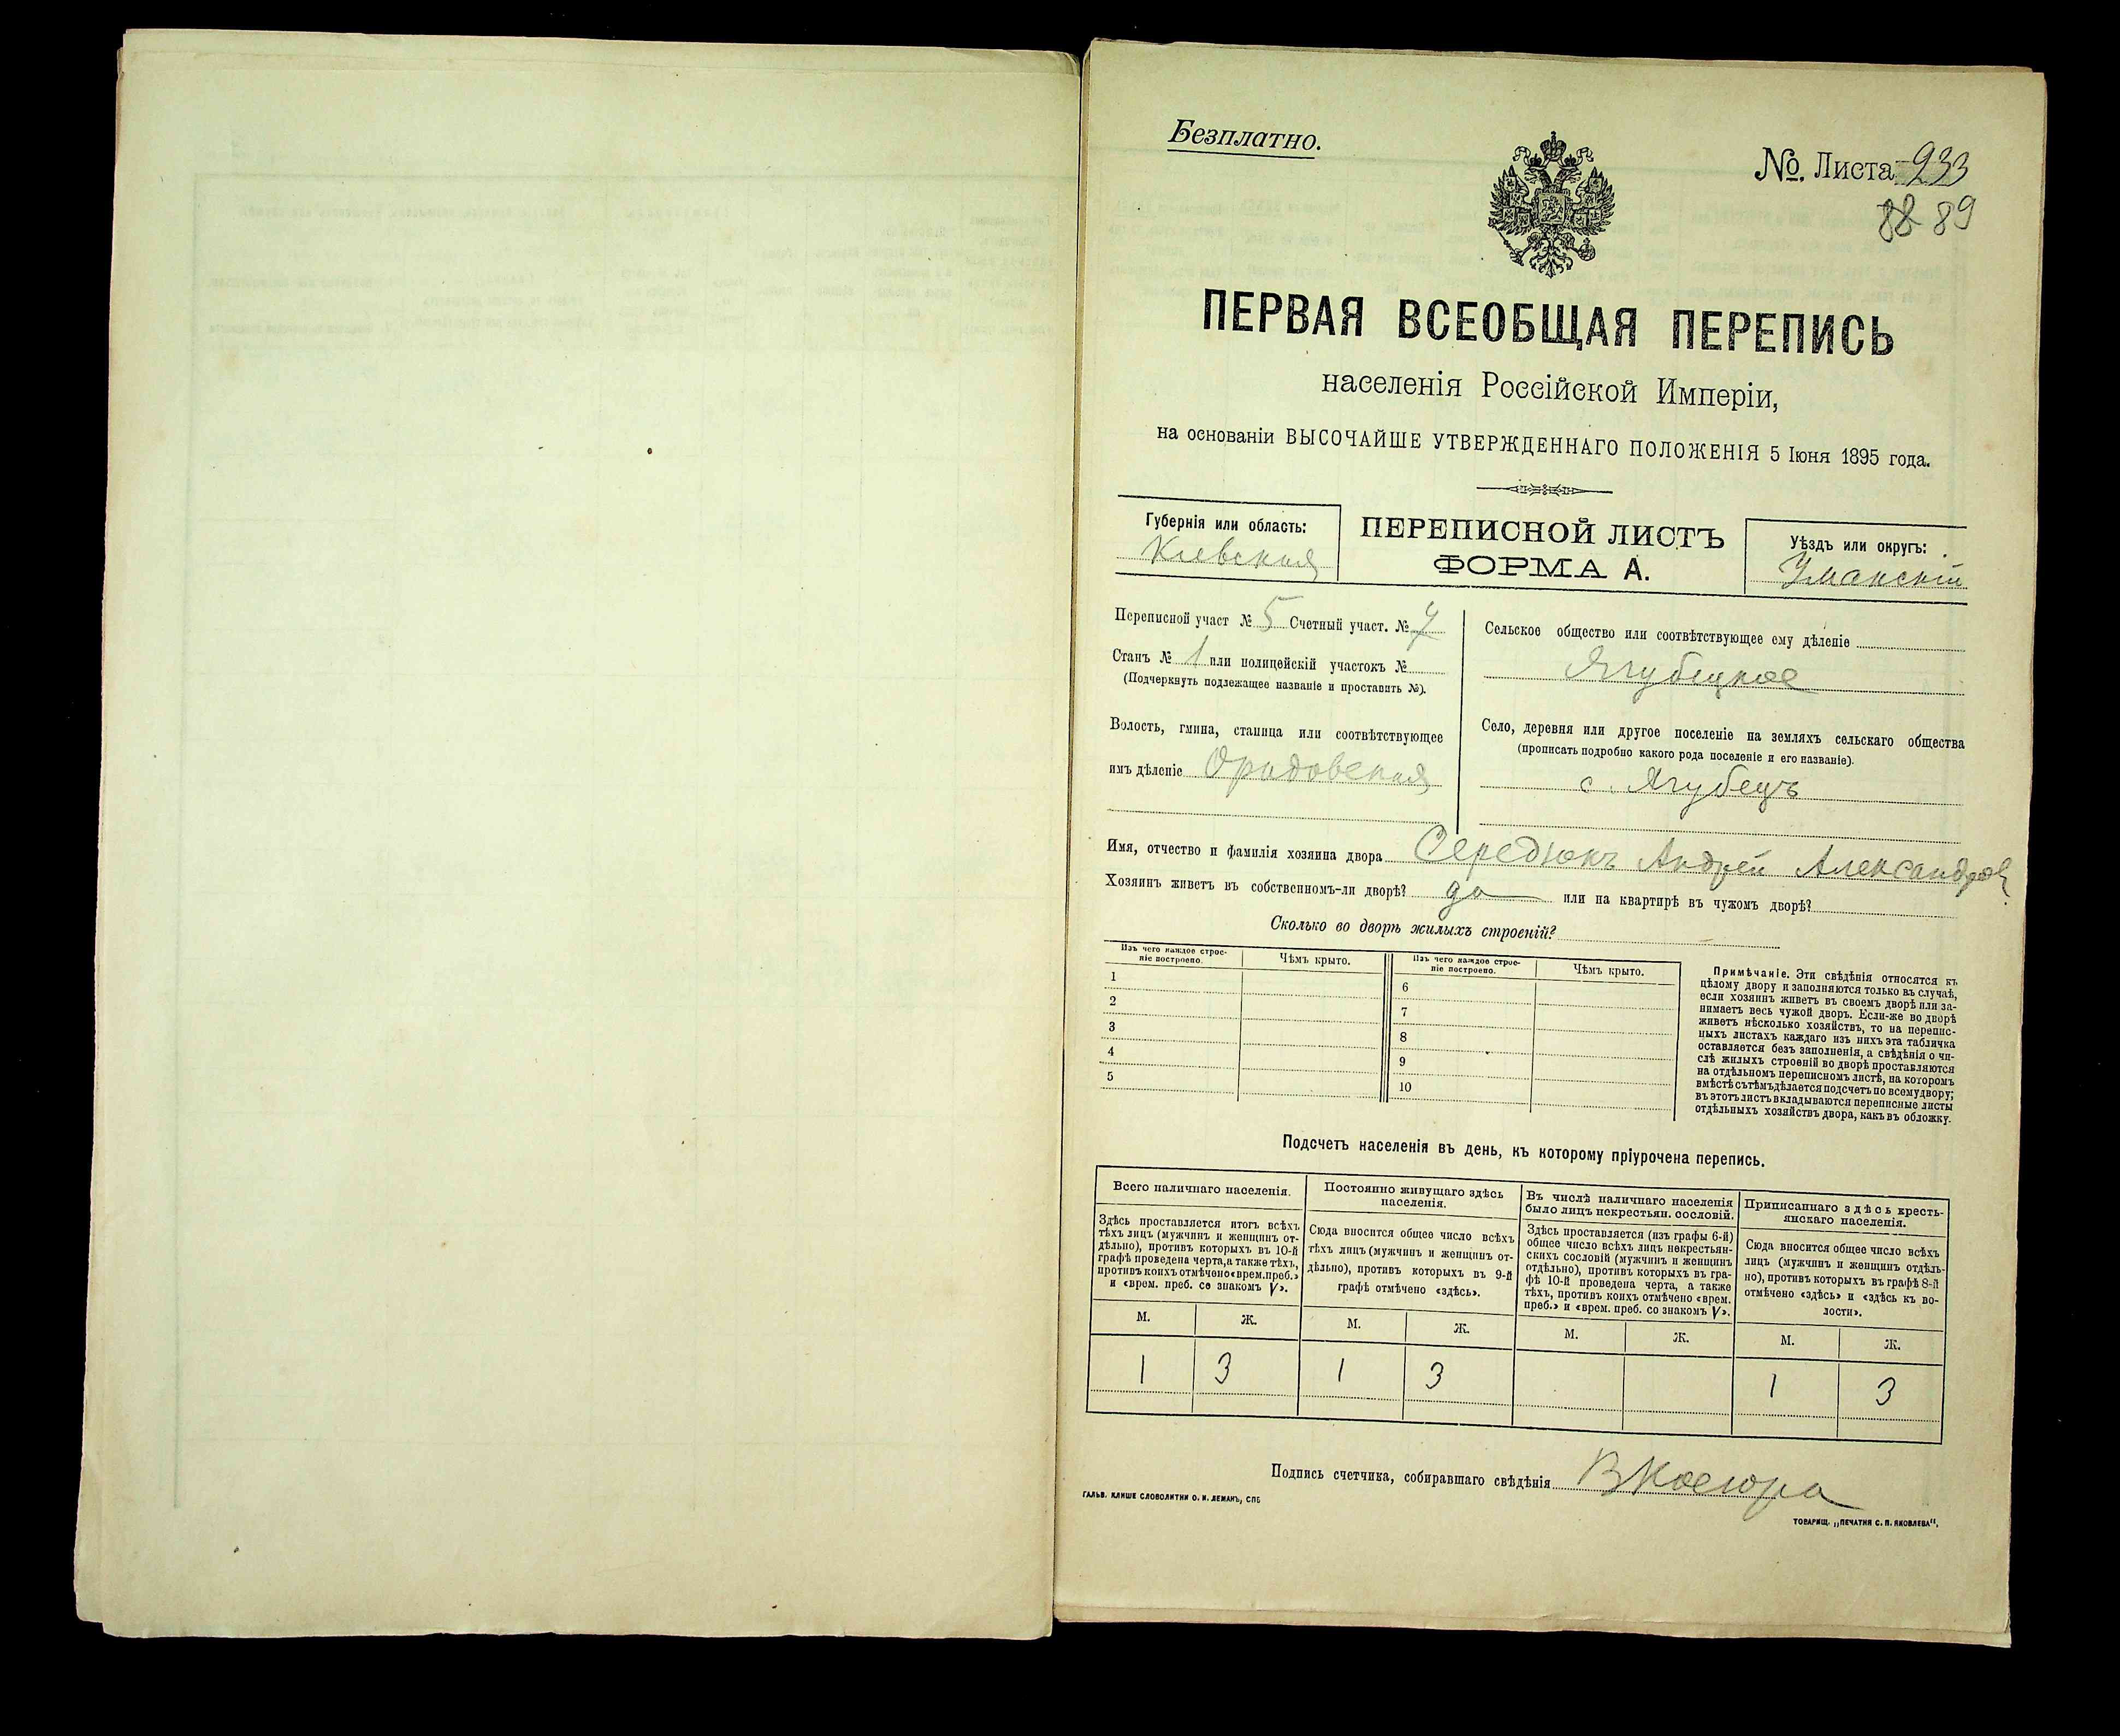 Безплатно.
№. Листа 933
88 89
ПЕРВАЯ ВСЕОБЩАЯ ПЕРЕПИСЬ
населенія Россійской Имперіи,
на основаніи ВЫСОЧАЙШЕ УТВЕРЖДЕННАГО ПОЛОЖЕНІЯ 5 Іюня 1895 года.
Губернія или область:
Кіевская
ПЕРЕПИСНОЙ ЛИСТЪ
ФОРМА А.
Уѣздъ или округъ:
Уманскій
Переписной участ № 5 Счетный участ. №
Станъ № 1 или полицейскій участокъ №
(Подчеркнуть подлежащее названіе и проставить №).
Волость, гмина, станица или соотвѣтствующее
имъ дѣленіе Орадовская
Сельское общество или соотвѣтствующее ему дѣленіе
Ягубецкое
Село, деревня или другое поселеніе на земляхъ сельскаго общества
(прописать подробно какого рода поселеніе и его названіе).
с. Ягубецъ
Имя, отчество и фамилія хозяина двора Середюкъ Андрей Александров
Хозяинъ живетъ въ собственномъ-ли дворѣ? да или на квартирѣ въ чужомъ дворѣ?
Сколько во дворѣ жилыхъ строеній?
Изъ чего каждое строе-
ніе построено.
Чѣмъ крыто.
Изъ чего каждое строе-
ніе построено.
Чѣмъ крыто.
1
2
3
4
5
6
7
8
9
10
Примѣчаніе. Эти свѣдѣнія относятся къ
цѣлому двору и заполняются только въ случаѣ,
если хозяинъ живетъ въ своемъ дворѣ или за-
нимаетъ весь чужой дворъ. Если-же во дворѣ
живетъ нѣсколько хозяйствъ, то на перепис-
ныхъ листахъ каждаго изъ нихъ эта табличка
оставляется безъ заполненія, а свѣдѣнія о чи-
слѣ жилыхъ строеній во дворѣ проставляются
на отдѣльномъ переписномъ листѣ, на которомъ
вмѣстѣ съ тѣмъ дѣлается подсчетъ по всему двору;
въ этотъ листъ вкладываются переписные листы
отдѣльныхъ хозяйствъ двора, какъ въ обложку.
Подсчетъ населенія въ день, къ которому пріурочена перепись.
Всего наличнаго населенія.
Здѣсь проставляется итогъ всѣхъ
тѣхъ лицъ (мужчинъ и женщинъ от-
дѣльно), противъ которыхъ въ 10-й
графѣ проведена черта, а также тѣхъ,
противъ коихъ отмѣчено «врем. преб.»
и «врем. преб. со знакомъ V».
Постоянно живущаго здѣсь
населенія.
Сюда вносится общее число всѣхъ
тѣхъ лицъ (мужчинъ и женщинъ от-
дѣльно), противъ которыхъ въ 9-й
графѣ отмѣчено «здѣсь».
Въ числѣ наличнаго населенія
было лицъ некрестьян. сословій.
Здѣсь проставляется (изъ графы 6-й)
общее число всѣхъ лицъ некрестьян-
скихъ сословій (мужчинъ и женщинъ
отдѣльно), противъ которыхъ въ гра-
фѣ 10-й проведена черта, а также
тѣхъ, противъ коихъ отмѣчено «врем.
преб.» и «врем. преб. со знакомъ V».
Приписаннаго здѣсь кресть-
янскаго населенія.
Сюда вносится общее число всѣхъ
лицъ (мужчинъ и женщинъ отдѣль-
но), противъ которыхъ въ графѣ 8-й
отмѣчено «здѣсь» и «здѣсь къ во-
лости».
М. Ж. М. Ж. М. Ж. М. Ж.
1 3 1 3 1 3
Подпись счетчика, собиравшаго свѣдѣнія В Косюра
ГАЛЬВ. КЛИШЕ СЛОВОЛИТНИ О. И. ЛЕМАНЪ, СПБ
ТОВАРИЩ. „ПЕЧАТНЯ С. П. ЯКОВЛЕВА“.